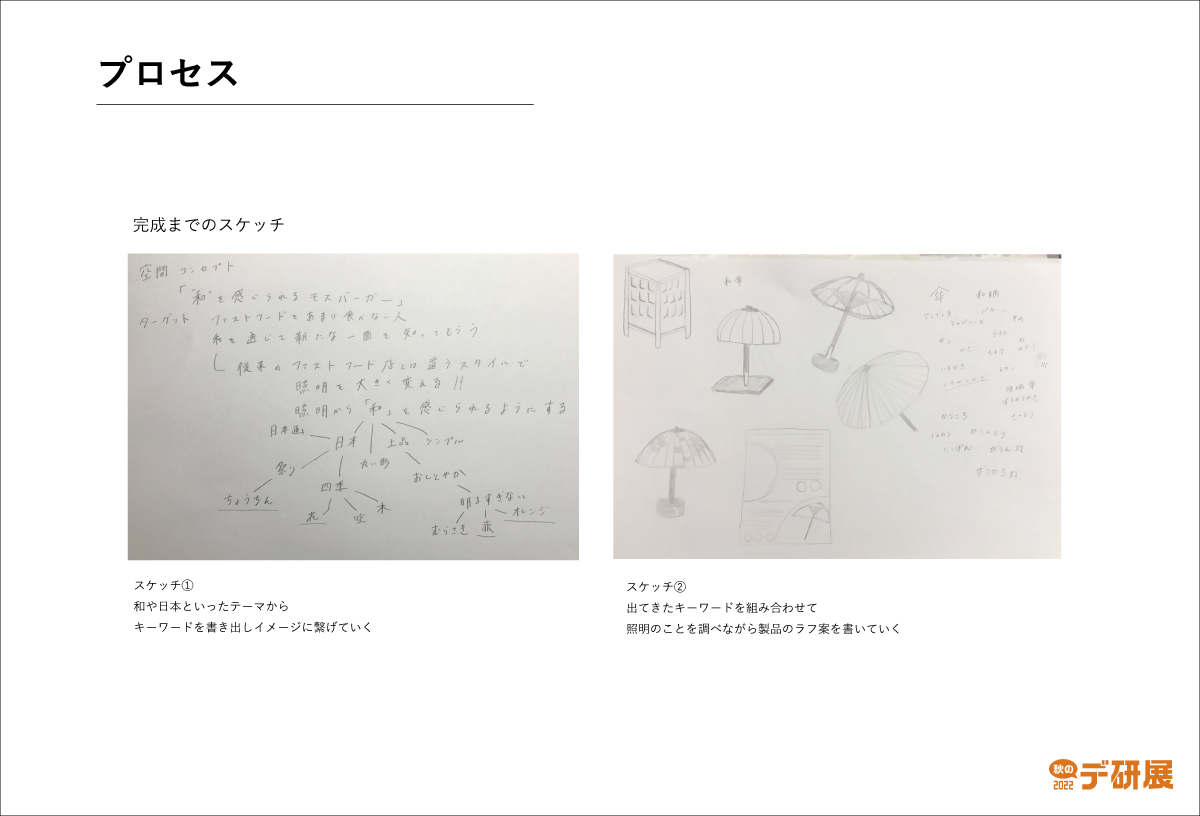 プロセス
完成までのスケッチ
空間 コンセプト
「"和"を感じられるモスバーガー」
ターゲット ファストフードをあまり食べない人
和を通じて新たな一面を知ってもらう
従来のファストフード店とは違うスタイルで
照明を大きく変える!!
照明から「和」を感じられるようにする
日本画
日本
上品
シンプル
祭り
丸い形
四季
おしとやか
ちょうちん
花
空
木
明るすぎない
オレンジ
むらさき
赤
和傘
傘 和柄
スケッチ①
和や日本といったテーマから
キーワードを書き出しイメージに繋げていく
スケッチ②
出てきたキーワードを組み合わせて
照明のことを調べながら製品のラフ案を書いていく
秋の
2022
デ研展